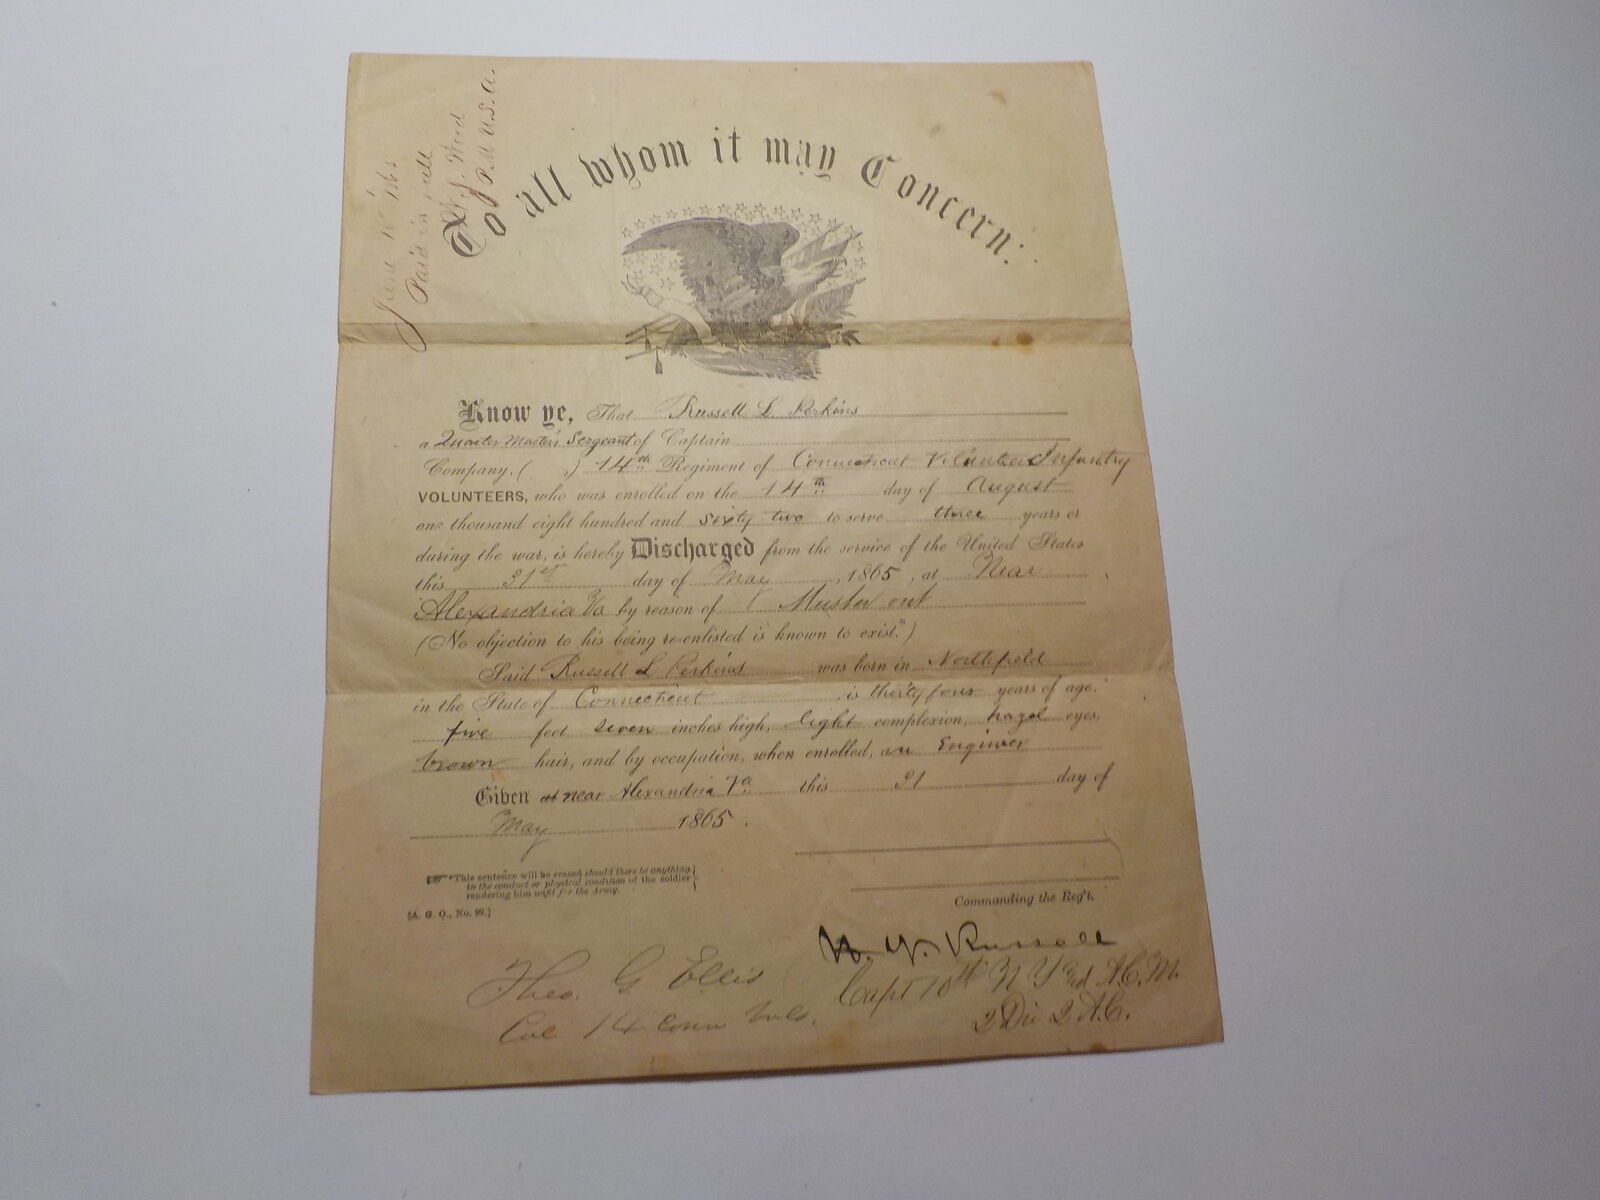 June 10th 1865
Paid in full
Wood
P.M. U.S.A.
To all whom it may Concern:
Know ye, That Russell L. Perkins
a Quarter Master's Sergeant of Captain
Company, ( ,) 14th Regiment of Connecticut Volunteer Infantry
VOLUNTEERS, who was enrolled on the 14th day of August
one thousand eight hundred and sixty two to serve three years or
during the war, is hereby Discharged from the service of the United States
this 31st day of May, 1865, at Near
Alexandria Va by reason of Muster out
(No objection to his being re-enlisted is known to exist.*)
Said Russell L Perkins was born in Northfield
in the State of Connecticut, is thirty four years of age,
five feet seven inches high, light complexion, hazel eyes,
brown hair, and by occupation, when enrolled, an Engineer
Given at near Alexandria Va this 31 day of
May 1865.
*This sentence will be erased should there be anything
in the conduct or physical condition of the soldier
rendering him unfit for the Army.
[A. G. O., No. 99.]
Commanding the Reg't.
Theo. G Ellis
Col 14 Conn Vols.
Russell
Capt 10th N Y A.C.M.
2 Div 2 A.C.